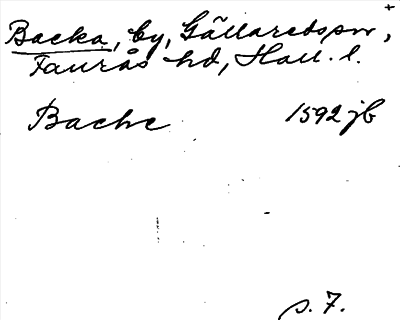 +
Backa, by, Gällaredspsn,
Faurås hd, Hall. l.
Bache 1592 jb
s. 7.